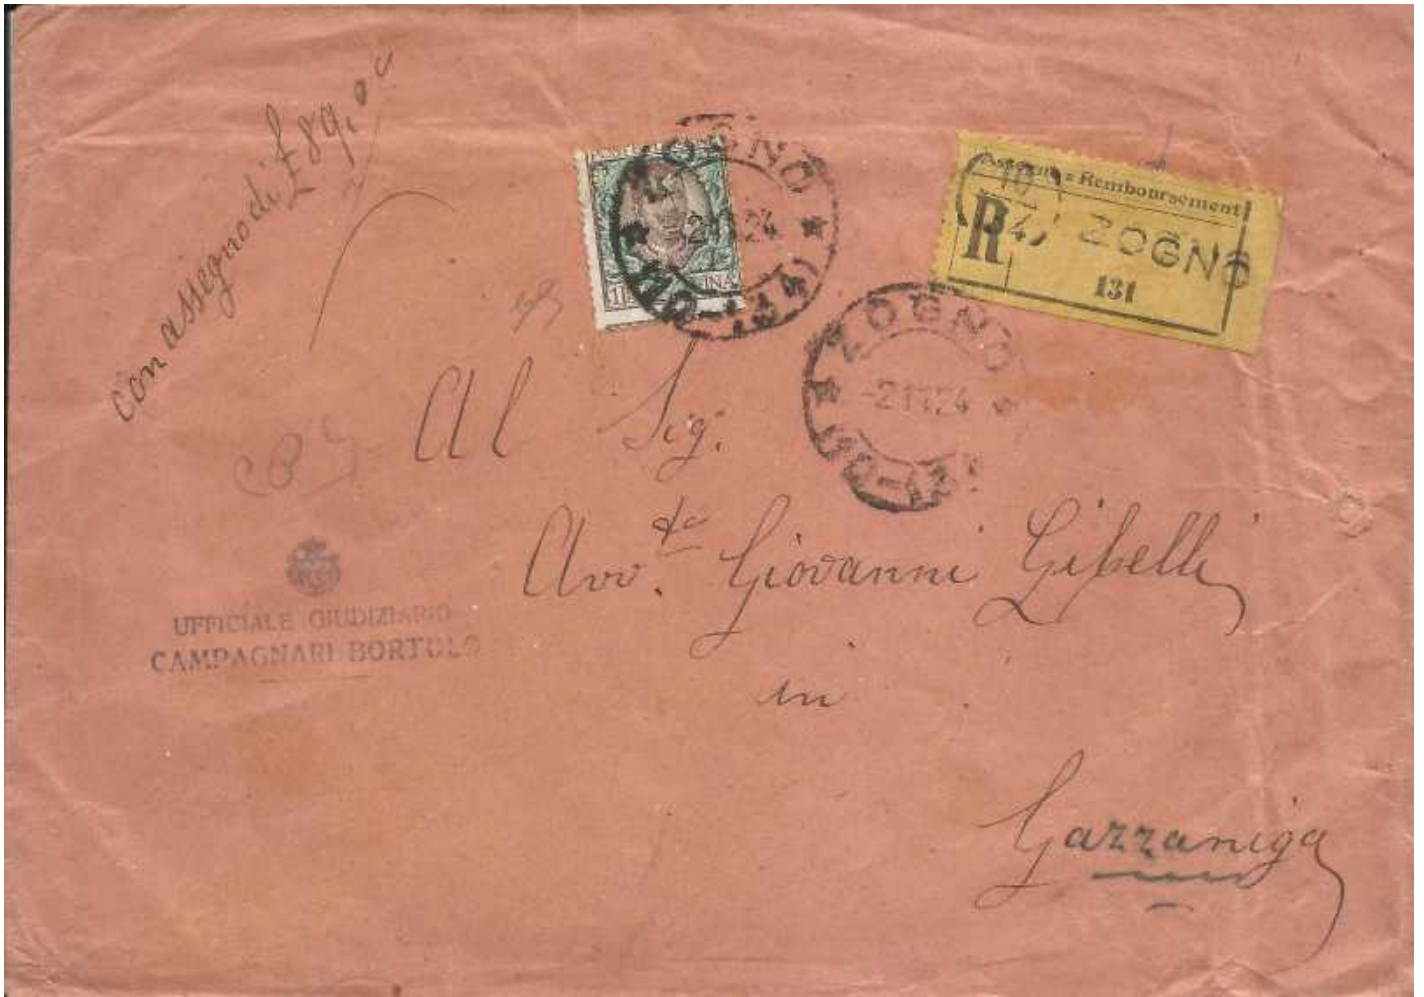 con assegno di £ 89,00
ZOGNO
24
Assegno = Remboursement
R
ZOGNO
131
ZOGNO
-2 11 24
Al Sig.
Avv.to Giovanni Gibelli
UFFICIALE GIUDIZIARIO
CAMPAGNARI BORTOLO
in
Gazzaniga